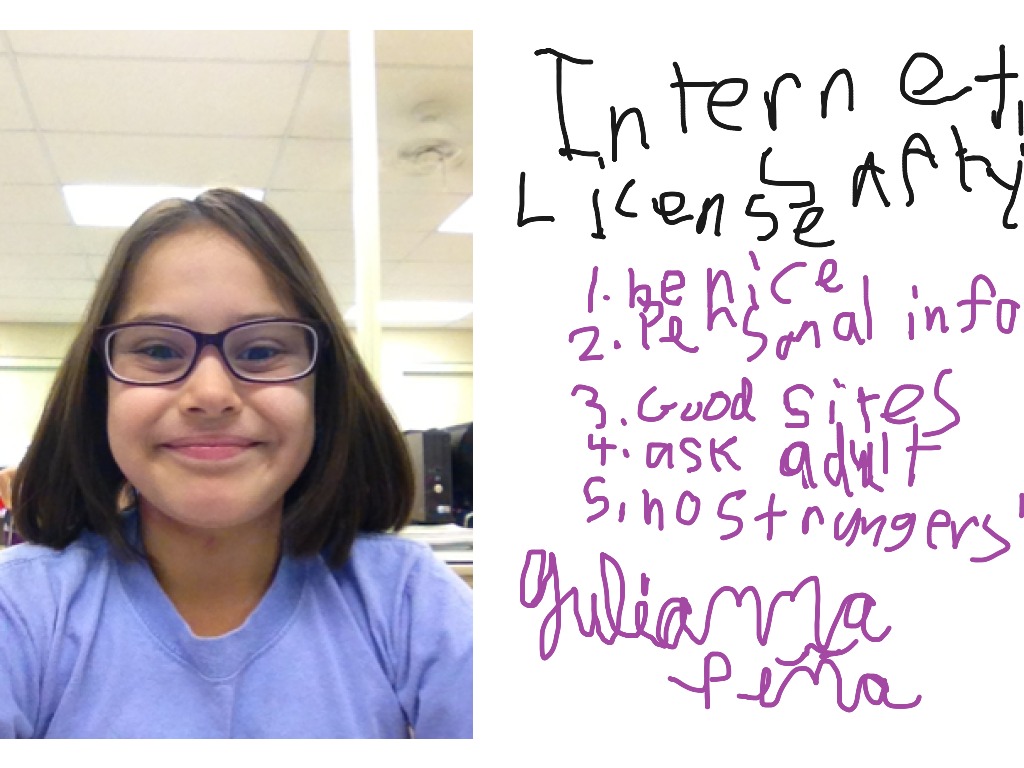 Internet
License safty
1. be nice
2. Personal info
3. Good sites
4. ask adult
5. no strangers
Yulianna
Peña